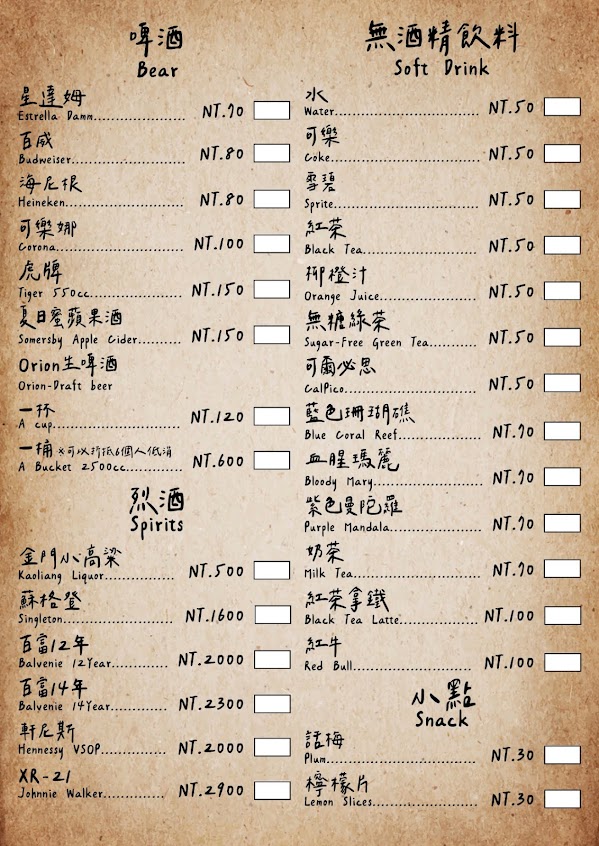 啤酒
Bear
星達姆
Estrella Damm..................... NT.70
百威
Budweiser......................... NT.80
海尼根
Heineken.......................... NT.80
可樂娜
Corona............................ NT.100
虎牌
Tiger 550cc....................... NT.150
夏日蜜蘋果酒
Somersby Apple Cider.......... NT.150
Orion生啤酒
Orion-Draft beer
一杯
A cup............................. NT.120
一桶 ※可以折抵6個人低消
A Bucket 2500cc............. NT.600
烈酒
Spirits
金門小高粱
Kaoliang Liquor............... NT.500
蘇格登
Singleton......................... NT.1600
百富12年
Balvenie 12Year............ NT.2000
百富14年
Balvenie 14Year............ NT.2300
軒尼斯
Hennessy VSOP............. NT.2000
XR-21
Johnnie Walker............. NT.2900
無酒精飲料
Soft Drink
水
Water............................. NT.50
可樂
Coke.............................. NT.50
雪碧
Sprite............................ NT.50
紅茶
Black Tea......................... NT.50
柳橙汁
Orange Juice..................... NT.50
無糖綠茶
Sugar-Free Green Tea.......... NT.50
可爾必思
CalPico........................... NT.50
藍色珊瑚礁
Blue Coral Reef................. NT.70
血腥瑪麗
Bloody Mary....................... NT.70
紫色曼陀羅
Purple Mandala................... NT.70
奶茶
Milk Tea.......................... NT.70
紅茶拿鐵
Black Tea Latte................. NT.100
紅牛
Red Bull.......................... NT.100
小點
Snack
話梅
Plum.............................. NT.30
檸檬片
Lemon Slices..................... NT.30